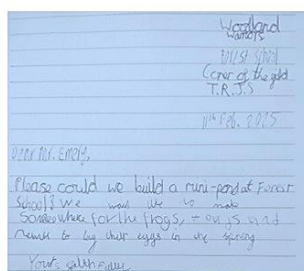 Woodland
Warriors
Forest School
Corner of the field
T.R.J.S
11th Feb. 2025
Dear Mr. Emery,
Please could we build a mini-pond at Forest
School? We want to make
somewhere for the frogs, and
newts to lay their eggs in the spring
Yours faithfully